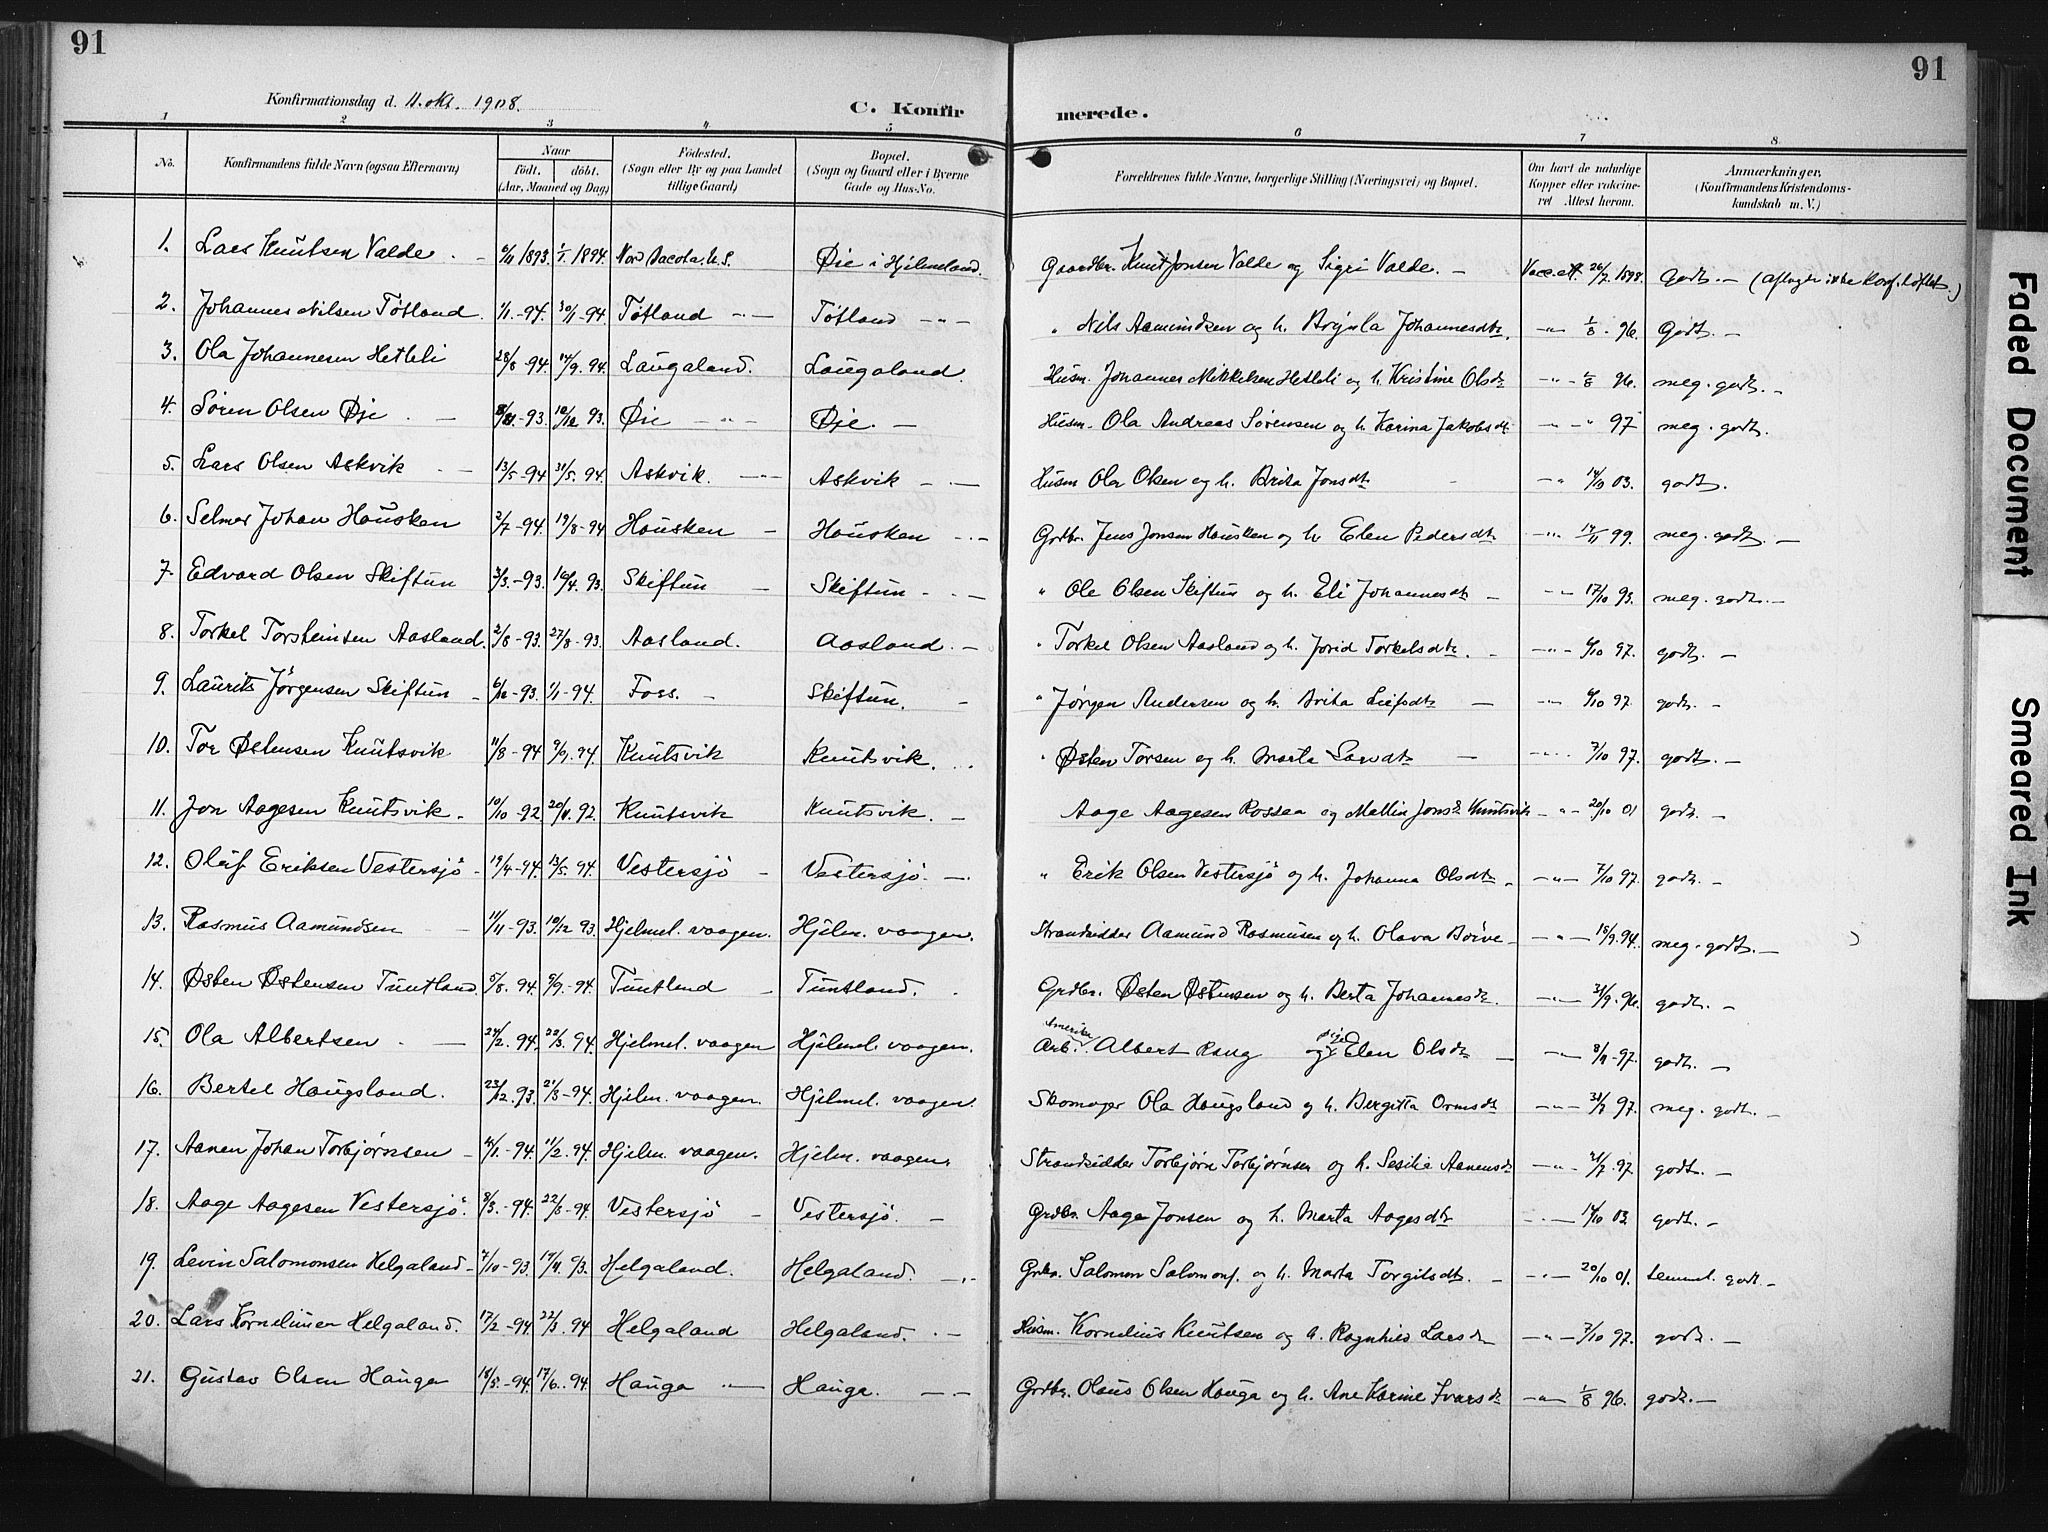 91
91
Konfirmationsdag d. 11. okt. 1908.
C. Konfirmerede.
1 2 3 4 5 6 7 8
No. Konfirmandens fulde Navn (ogsaa Efternavn) Naar Födt. döbt. (Aar, Maaned og Dag) Födested. (Sogn eller By og paa Landet tillige Gaard) Bopæl. (Sogn og Gaard eller i Byerne Gade og Hus-No. Forældrenes fulde Navne, borgerlige Stilling (Næringsvei) og Bopæl. Om havt de naturlige Kopper eller vakcineret Attest herom. Anmærkninger, (Konfirmandens Kristendomskundskab m. V.)
1. Lars Knutsen Valde. - 6/11 1893. 1/1 1894. Nord Dacota. U.S. Øie i Hjelmeland. Gaardbr. Knut Jonsen Valde og Sigri Valde. - Vacc. att. 26/7 1898. Godt. - (aflagde ikke Konf. löftet.)
2. Johannes Nilsen Tötland. 1/1-94. 30/1-94. Töfland -"- Töfland -"- " Nils Aamundsen og h. Brynla Johannesdtr. -"- 1/8 - 96. Godt. -
3. Ola Johannesen Hetleli 28/8-94. 14/9. 94. Laugaland. Laugaland. Husm. Johannes Mikkelsen Hetleli og h. Kristine Olsdtr -"- 1/8 96. meg. godt. -
4. Sören Olsen Øje - 93. 10/12 93. Øie -"- Øje. - Husm. Ola Andreas Sörensen og h. Karina Jakobsdt. -"- " 97 meg. godt.
5. Lars Olsen Askvik - 13/5-94 31/5. 94. Askvik. -"- Askvik - Husm Ola Olsen og h. Brita Jonsdtr -"- 14/10 03. godt.
6. Selmer Johan Hausken 2/7-94. 19/8-94 Hausken - Hausken - Grdbr. Jens Jonsen Hausken og h. Elen Pedersdtr -"- 14/11 99. meg. godt. -
7. Edvard Olsen Skiftun 3/3.-93. 16/4. 93. Skiftun - Skiftun - " Ole Olsen Skiftun og h. Eli Johannesdtr - -"- 17/10 93. meg. godt. -
8. Torkel Torsteinsen Aasland. 2/8-93. 27/8-93. Aasland. Aasland. - " Torkel Olsen Aasland og h. Jorid Torkelsdtr. - -"- 6/10 97. godt. -
9. Laurits Jörgensen Skiftun - 6/12-93. 1/1-94. Foss. - Skiftun. - " Jörgen Andersen og h. Brita Leifsdtr - -"- 6/10 97. godt. -
10. Tor Østensen Knutsvik 11/8-94 9/9. 94. Knutsvik Knutsvik. " Østen Torsen og h. Marta Larsdtr - -"- 7/10 97. godt. -
11. Jon Aagesen Knutsvik. 10/10-92 20/11. 92. Knutsvik Knutsvik. - Aage Aagesen Rossaa og Mallin Jonsd. Knutsvik -"- 20/10 01 godt. -
12. Olaf Eriksen Vestersjö - 19/4-94. 13/5. 94. Vestersjö - Vestersjö. - " Erik Olsen Vestersjö og h. Johanna Olsdtr - -"- 7/10 97. godt. -
13. Rasmus Aamundsen - 11/11-93. 10/12 93. Hjelmel. vaagen. Hjelm. vaagen. Strandsidder Aamund Rasmussen og h. Olava Boive - -"- 18/9. 94. meg. godt. -
14. Østen Østensen Tuntland. 5/8. 94. 9/9.-94. Tuntland - Tuntland. Grdbr. Østen Østensen og h. Berta Johannesdtr. -"- 31/9. 96. godt. -
15. Ola Albertsen - 24/2. 94. 22/3. 94. Hjelmel. vaagen Hjelmel. vaagen. Arb. Amerika Albert Raug og pige Elen Olsdtr -"- 8/11-97. godt. -
16. Bertel Haugsland. 23/12. 93. 21/3-94. Hjelm. vaagen. Hjelmel. vaagen. Skomager Ola Haugsland og h. Bergitta Ormsdtr -"- 31/7 97. meg. godt. -
17. Aanen Johan Torbjörnsen - /1.-94. 11/2.-94. Hjelm. vaagen. Hjelm. vaagen. Strandsidder Torbjörn Torbjörnsen og h. Sesilie Aanensdtr -"- 31/7. 97. godt. -
18. Aage Aagesen Vestersjö. 8/3.-94. 22/3-94. Vestersjö - Vestersjö. - Grdbr. Aage Jonsen og h. Marta Aagesdtr -"- 14/10 03. godt. -
19. Levin Salomonsen Helgaland - 7/10-93. 19/11. 93. Helgaland. Helgaland. - Grdbr. Salomon Salomons. og h. Marta Torgilsdtr. - -"- 20/10 01. temmel. godt. -
20. Lars Korneliusen Helgaland. 17/2-94. 22/3. 94 Helgaland Helgaland. - Husm. Kornelius Knutsen og h. Ragnhild Larsdtr -"- 7/10 97. godt. -
21. Gustav Olsen Hauga 18/5.-94. 17/6. 94. Hauga -"- Hauga. - Grdbr. Olaus Olsen Hauga og h. Ane Karine Ivarsdtr -"- 1/8 96. godt. -
Faded Document
Smeared Ink